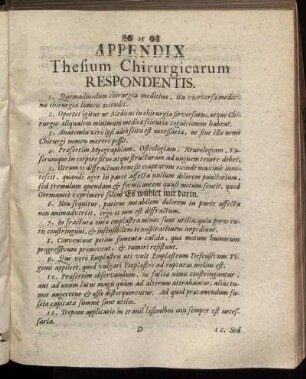 25
APPENDIX
Thesium Chirurgicarum
RESPONDENTIS.
1. Quemadmodum chirurgia medicinæ, ita vicversa medici-
na chirurgiæ lumen accendit.
2. Oportet igitur ut Medicus in chirurgia sit versatus, atque Chi-
rurgus aliqualem minimum medicæ scientiæ cognitionem habeat.
3. Anatomia verò ipsi adeò scitu est necessaria, ut sine illa nomen
Chirurgi nunquam mereri possit.
4. Præsertim Myographiam, Osteologiam, Neurologiam, Va-
sorumque in corpore situs atque structuram ad unguem tenere debet.
5. Utrum os diffractum
fest, quando æger in parte affecta nullum dolorem puncturium,
sed tremulum quendam & formicantem quasi motum sentit, quod
Germanicè exprimere solent Es wühlet mir darin.
6. Non sequitur, patiens mutabilem dolorem in parte affecta
non animadvertit, ergo os non est diffractum.
7. In fractura cura emplastra minus sunt utilia, quia poros cu-
tis constringunt, & insensibilem transpirationem impediunt.
8. Conveniunt potius fomenta calida, quæ motum humorum
progressivum promovent, & tumori resistunt.
9. Qui verò Emplastro uti vult Emplastrum Defensivum Vi-
gonis applicet, quod vulgari Emplastro ad rupturas melius est.
10. Præsertim observandum, ne fascia nimis constringantur
aut ad unum latus magis quàm ad alterum attrahantur,
tumor augeretur & ossa distorquerentur. Ad quod præcavendum fa-
scia capitata summè sunt utiles.
11. Trepani applicatio in cranii læsionibus non semper est neces-
saria.
D
12. Sed